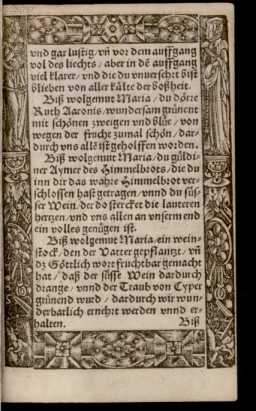 vnd gar lustig/ vñ vor dem auffgang
vol des liechts / aber in dē auffgang
viel klarer/ vnd die du vnuersehrt bist
blieben von aller kälte der boßheit.
Biß wolgemut Maria / du dörre
Ruth Aaronis, wundersam grünent
mit schönen zweigen vnd blüt / von
wegen der frucht zumal schön / dar-
durch vns allē ist geholffen worden.
Biß wolgemut Maria/ du güldi-
ner Aymer des Himmelbrots/ die du
inn dir das wahre Himmelbrot ver-
schlossen hast getragen/ vnnd du süs-
ser Wein/ der do stercket die lauteren
hertzen/ vnd vns allen an vnserm end
ein volles genügen ist.
Biß wolgemut Maria/ ein wein-
stock/ den der Vatter gepflantzt/ vñ
dz Göttlich wort fruchtbar gemacht
hat / daß der süsse Wein dardurch
drange/ vnnd der Traub von Cyper
grünend wurd / dardurch wir wun-
derbarlich ernehrt werden vnnd er-
halten. Biß